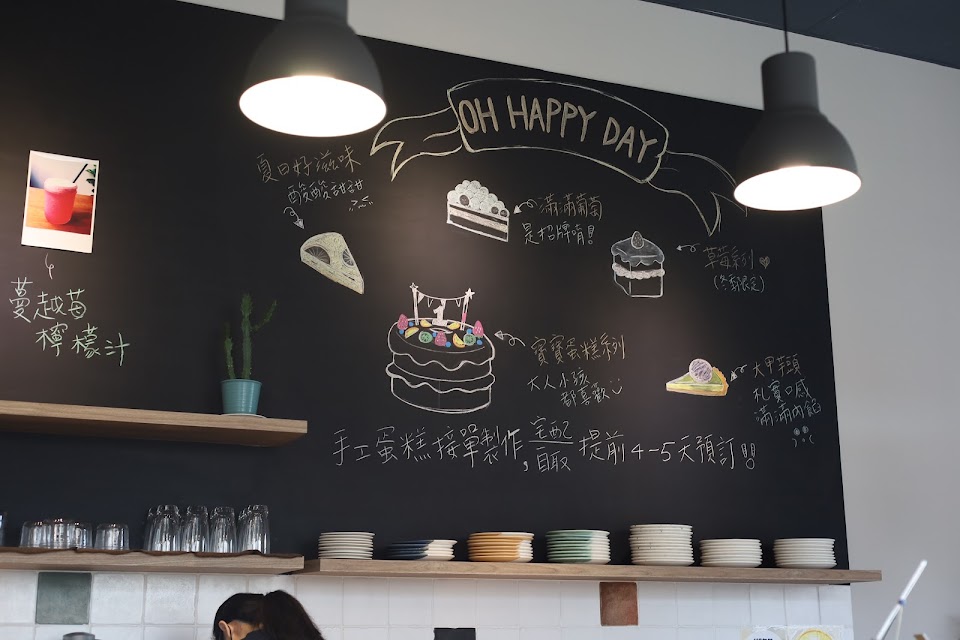 OH HAPPY DAY
夏日好滋味
酸酸甜甜
滿滿葡萄
是招牌唷!
草莓系列
(冬季限定)
蔓越莓
檸檬汁
寶寶蛋糕系列
大人小孩
都喜歡
大甲芋頭
扎實口感
滿滿內餡
手工蛋糕接單製作,宅配
自取 提前4~5天預訂!!